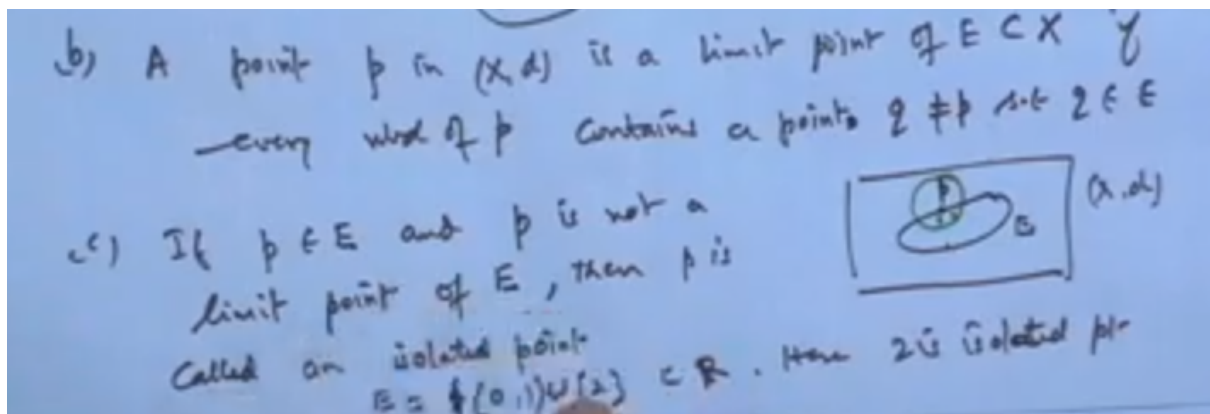 b) A point p in (X,d) is a limit point of E ⊂ X if
every nbd of p contains a point q ≠ p s.t q ∈ E
(X,d)
p
E
c) If p ∈ E and p is not a
limit point of E, then p is
called an isolated point
E = {(0,1)∪{2} ⊂ R. Here 2 is isolated pt